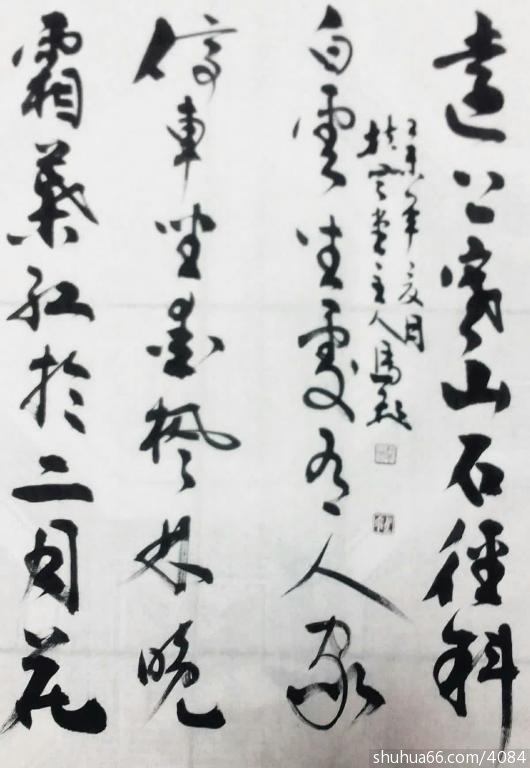 遠上寒山石徑斜
年夏月
堂主人馬
白雲生處有人家
停車坐愛楓林晚
霜葉紅於二月花
shuhua66.com/4084